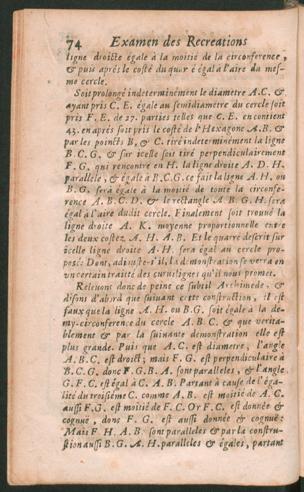 74 Examen des Recreations
ligne droitte égale à la moitié de la circonference,
& puis aprés le costé du quarré égal à l'aire du mes-
mo cercle.
Soit prolongé indeterminément le diametre A. C. &
ayant pris C. E. égale au semidiametre du cercle soit
pris F. E. de 27. parties telles que C. E. en contient
43. en aprés soit pris le costé de l'Hexagone A. B. &
par les poincts B, & C. tiré indeterminément la ligne
B. C. G, & sur icelle soit tiré perpendiculairement
F. G, qui rencontre en H. la ligne droite A. D. H.
parallele, & égale à B. C. G. ce fait la ligne A. H. ou
B. G. sera égale à la moitié de toute la circonfe-
rence A. B. C. D. & le rectangle A. B. G. H. sera
égal à l'aire dudit cercle. Finalement soit trouué la
ligne droite A. K. moyenne proportionnelle entre
les deux costez A. H. A. B. Et le quarré descrit sur
icelle ligne droite A. H. sera égal au cercle pro-
posé: Dont, adiouste-t'il, la démonstration se verra en
vn certain traitté des curuilignes qu'il nous promet.
Releuons donc de peine ce subtil Archimede, &
disons d'abord que suiuant cette construction, il est
faux que la ligne A. H. ou B. G. soit égale à la de-
my-circonference du cercle A. B. C. & que verita-
blement & par la suiuante démonstration elle est
plus grande. Puis que A. C. est diametre, l'angle
A. B. C. est droict; mais F. G. est perpendiculaire à
B. C. G. donc F. G. B. A. sont paralleles, & l'angle
G. F. C. est égal à C. A. B. Partant à cause de l'éga-
lité du troisième C. comme A. B. est moitié de A. C.
aussi F. G. est moitié de F. C. Or F. C. est donnée &
cognuë, donc F. G. est aussi donnée & cognuë:
Mais F H. A B. sont paralleles & par la constru-
ction aussi B. G. A. H. paralleles & égales, partant